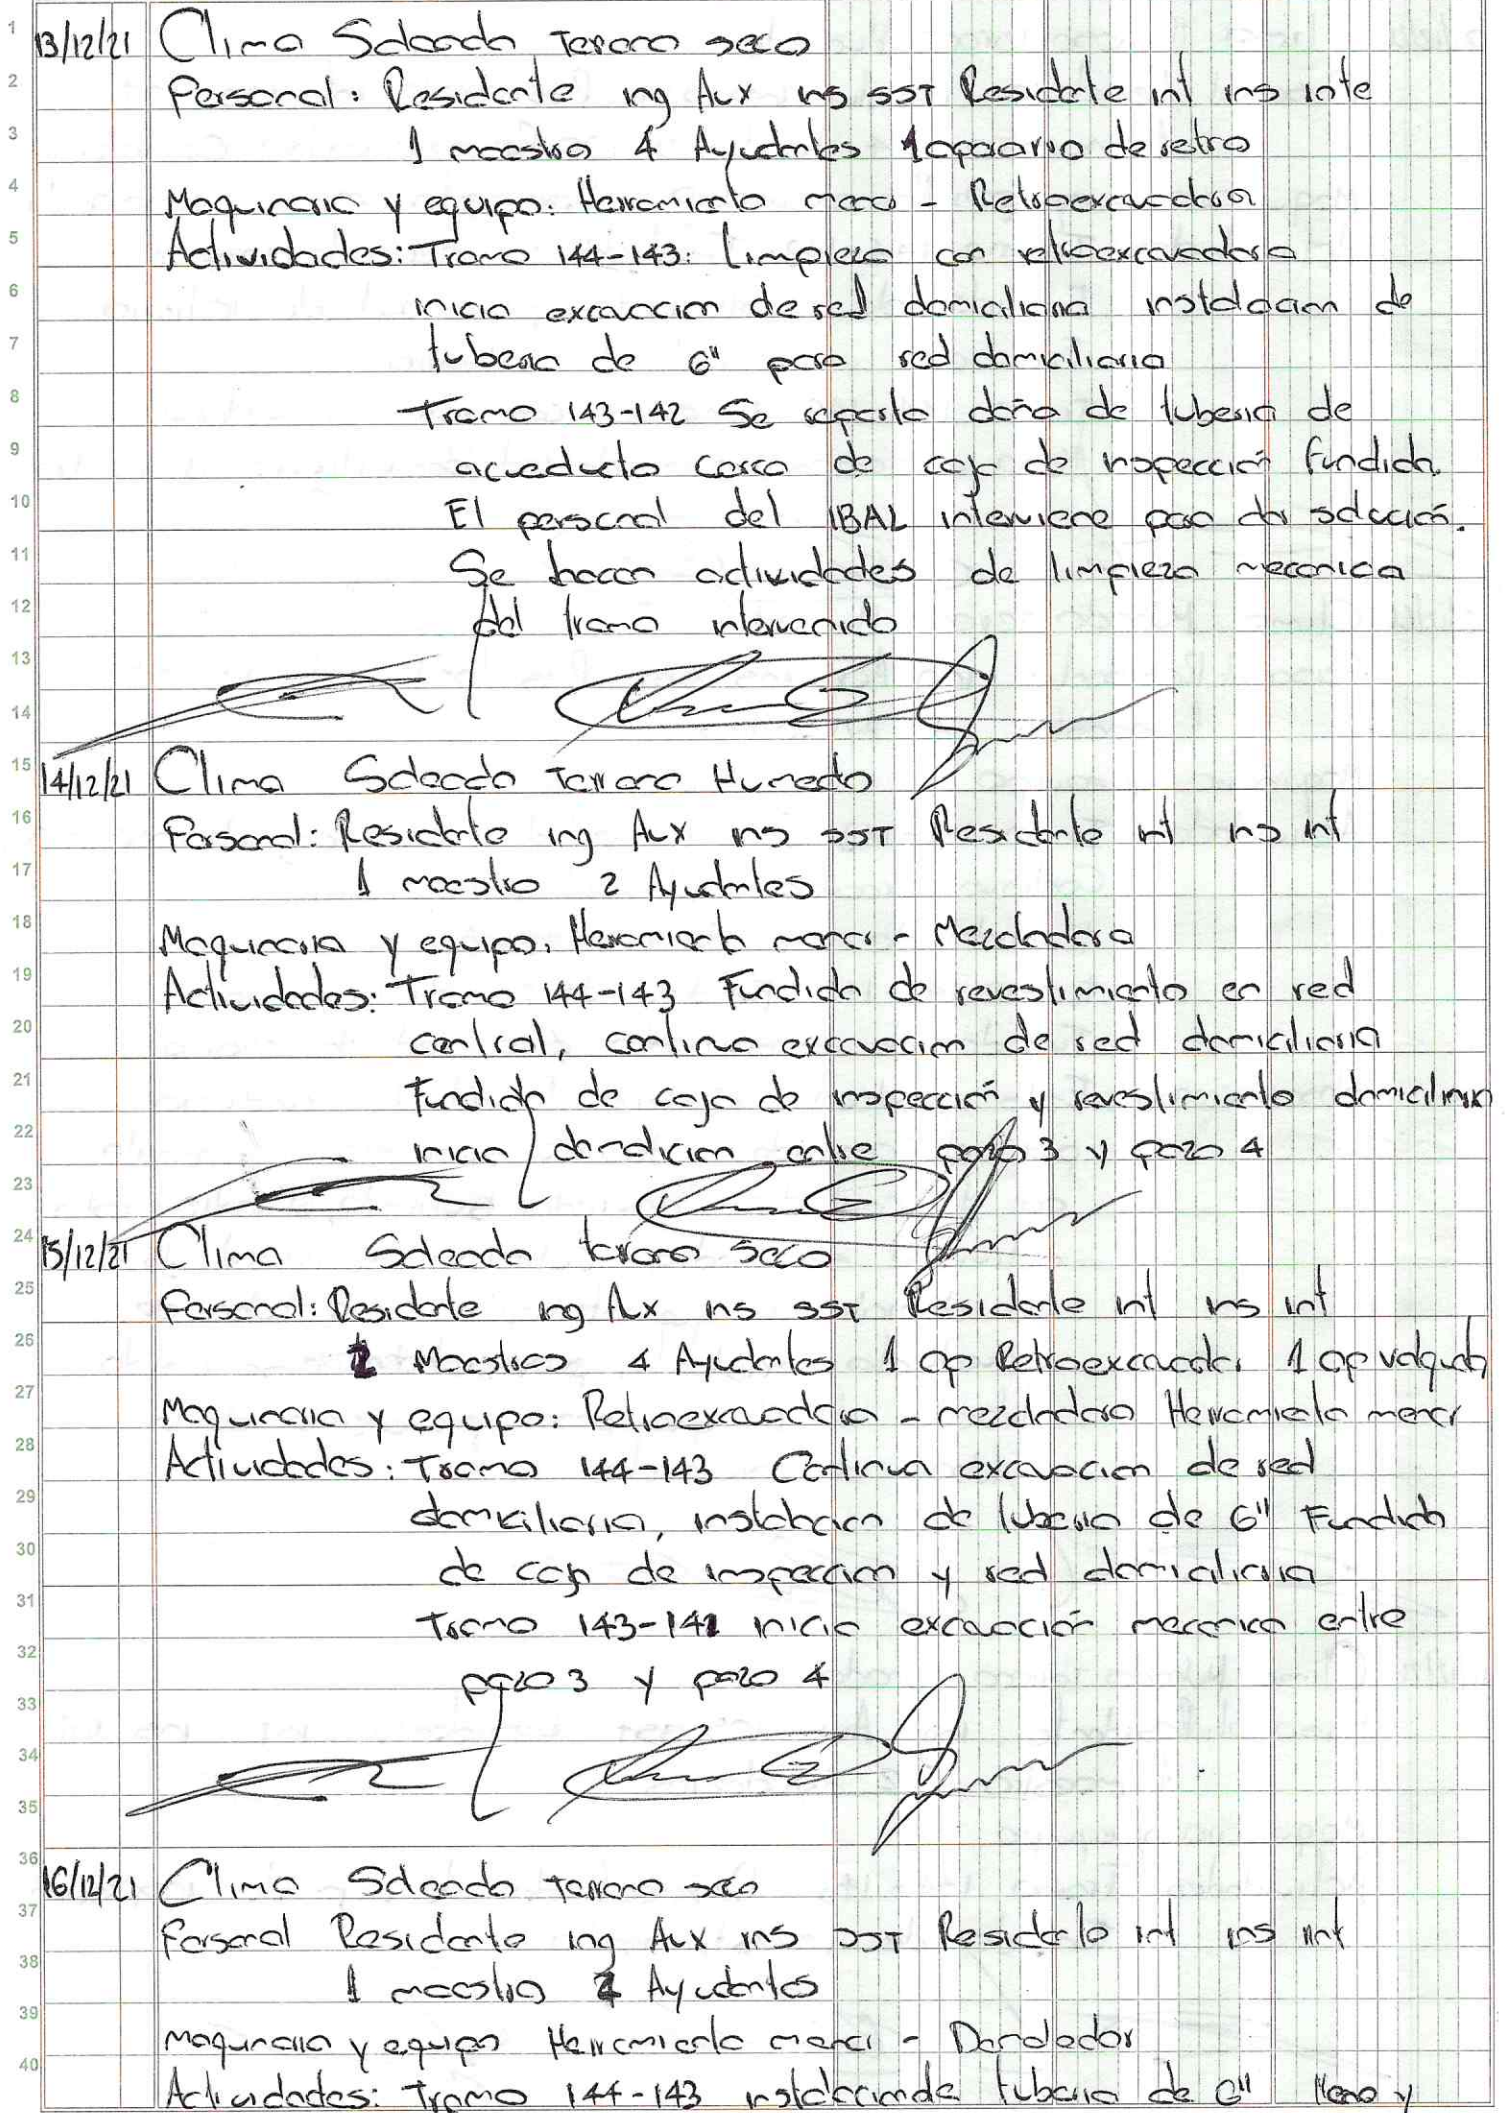 1 13/12/21 Clima Soleado Terreno seco
2 Personal: Residente ing Aux ins SST Residente int ins inte
3 1 maestro 4 Ayudantes 1 operario de retro
4 Maquinaria y equipo: Herramienta menor - Retroexcavadora
5 Actividades: Tramo 144-143: limpieza con retroexcavadora
6 inicia excavacion de red domiciliaria instalacion de
7 tuberia de 6" para red domiciliaria
8 Tramo 143-142 Se reporta daño de tuberia de
9 acueducto cerca de caja de inspección fundida.
10 El personal del IBAL interviene para dar solución.
11 Se hacen actividades de limpieza mecanica
12 del tramo intervenido
13
14
15 14/12/21 Clima Soleado Terreno Humedo
16 Personal: Residente ing Aux ins SST Residente int ins int
17 1 maestro 2 Ayudantes
18 Maquinaria y equipo: Herramienta menor - Mezcladora
19 Actividades: Tramo 144-143 Fundida de revestimiento en red
20 central, continua excavacion de red domiciliaria
21 Fundida de caja de inspección y revestimiento domiciliaria
22 inicia demolicion entre pozo 3 y pozo 4
23
24 15/12/21 Clima Soleado terreno seco
25 Personal: Residente ing Aux ins SST Residente int ins int
26 Maestros 4 Ayudantes 1 op Retroexcavador 1 op volqueta
27 Maquinaria y equipo: Retroexcavadora - mezcladora Herramienta menor
28 Actividades: Tramo 144-143 Continua excavacion de red
29 domiciliaria, instalacion de tuberia de 6" Fundida
30 de caja de inspeccion y red domiciliaria
31 Tramo 143-142 inicia excavación mecanica entre
32 pozo 3 y pozo 4
33
34
35
36 16/12/21 Clima Soleado Terreno seco
37 Personal Residente ing Aux ins SST Residente int ins int
38 1 maestro Ayudantes
39 Maquinaria y equipo Herramienta menor - Demoledor
40 Actividades: Tramo 144-143 instalacion de tuberia de 6" lleno y